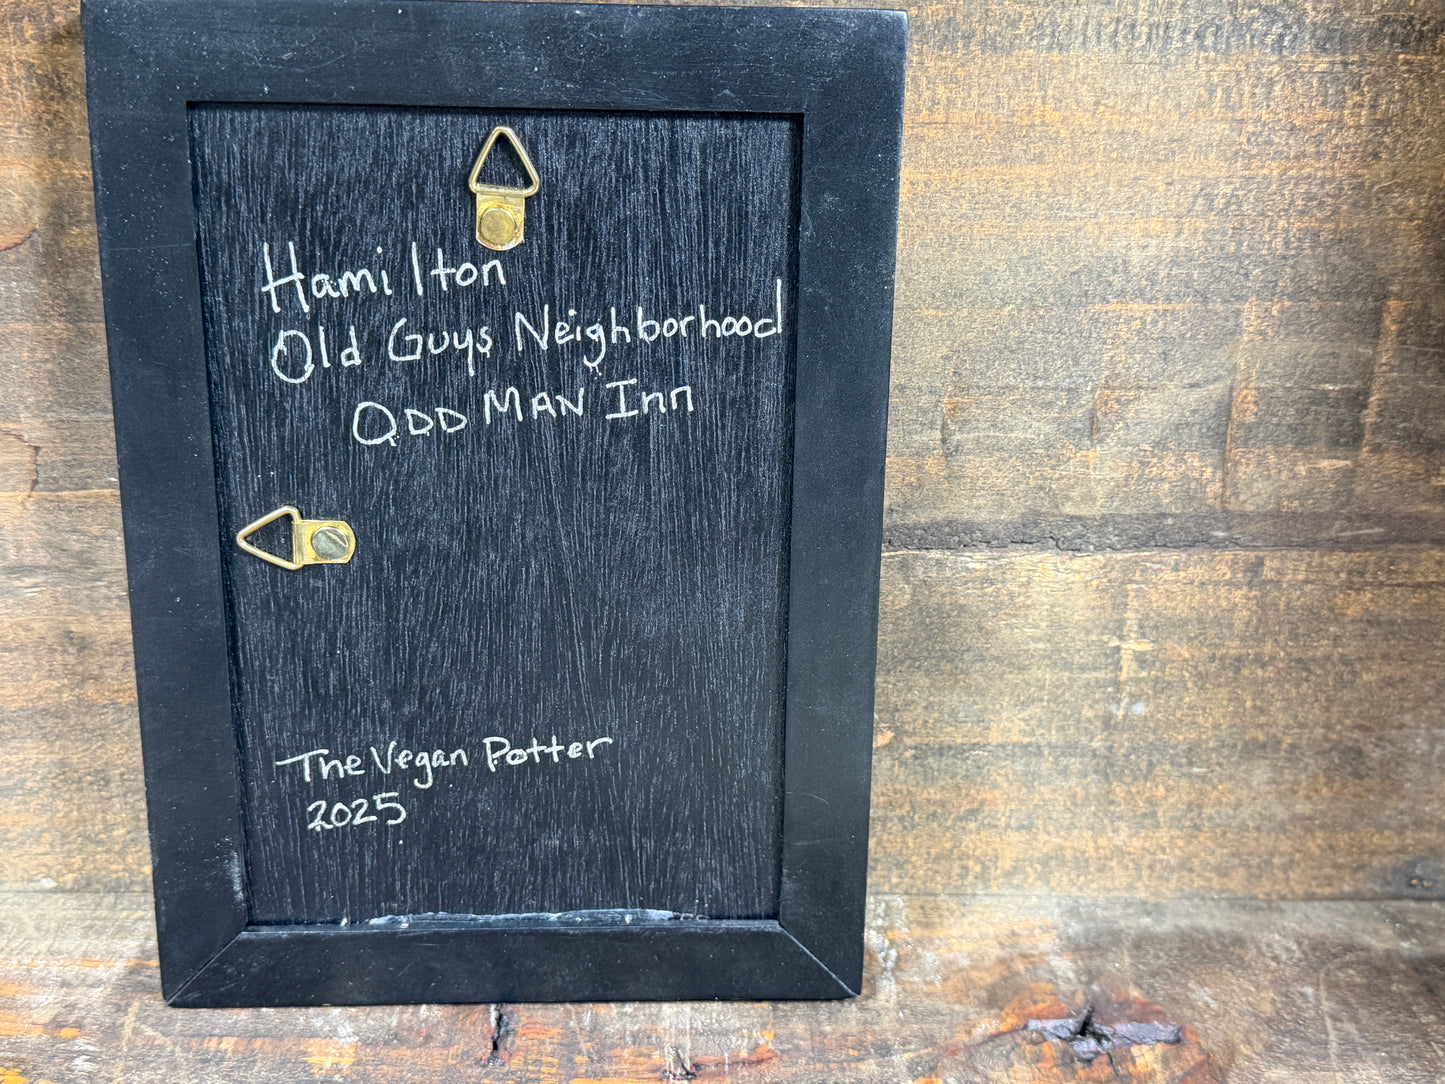 Hamilton
Old Guys Neighborhood
ODD MAN Inn
The Vegan Potter
2025